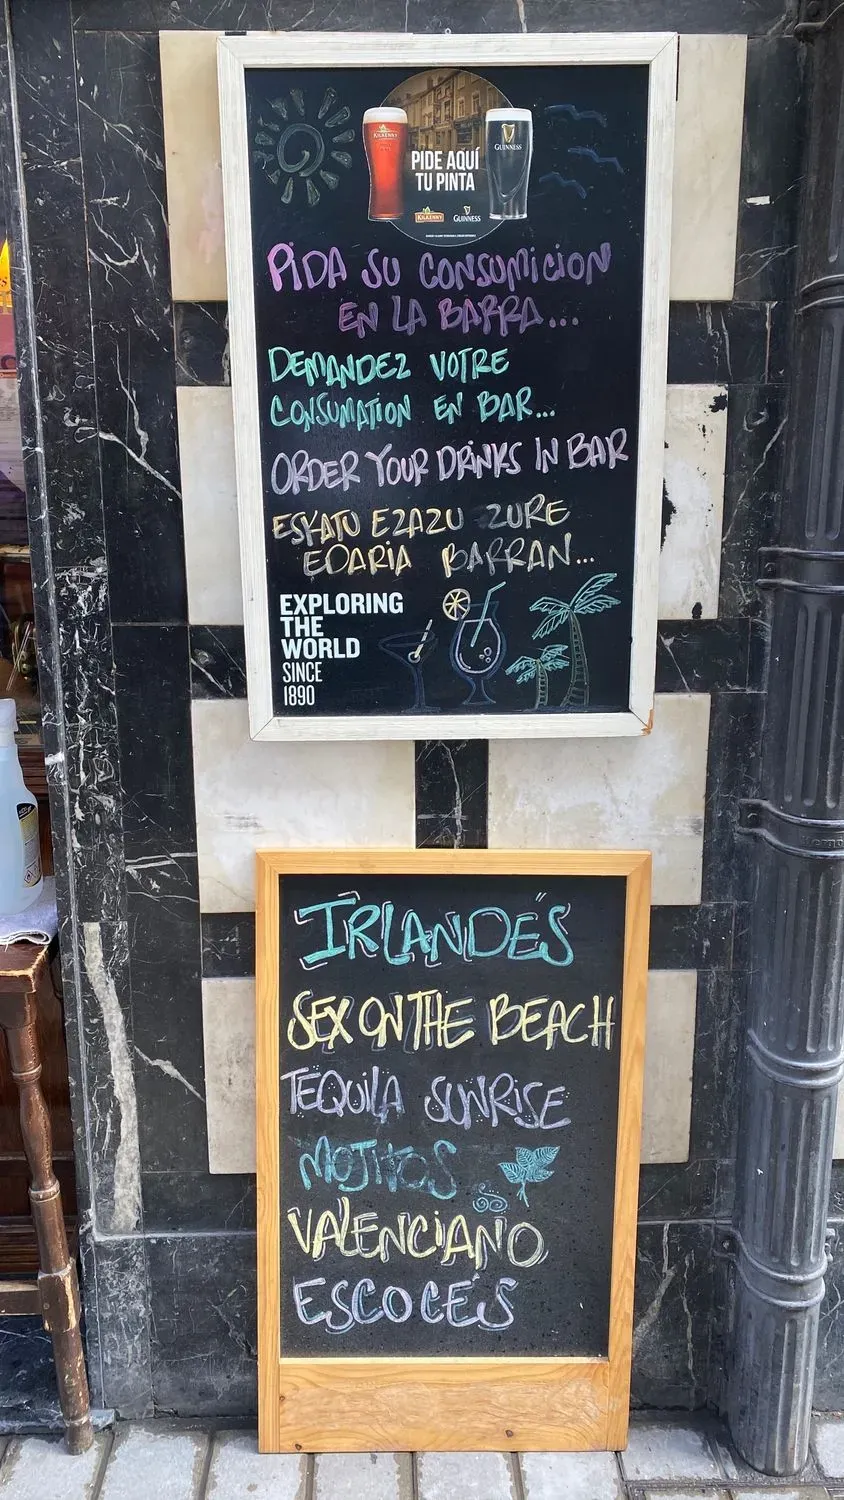 KILKENNY
GUINNESS
PIDE AQUÍ
TU PINTA
KILKENNY GUINNESS
PIDA SU CONSUMICION
EN LA BARRA...
DEMANDEZ VOTRE
CONSUMATION EN BAR...
ORDER YOUR DRINKS IN BAR
ESKATU EZAZU ZURE
EDARIA BARRAN...
EXPLORING
THE
WORLD
SINCE
1890
IRLANDÉS
SEX ON THE BEACH
TEQUILA SUNRISE
MOJITOS
VALENCIANO
ESCOCÉS